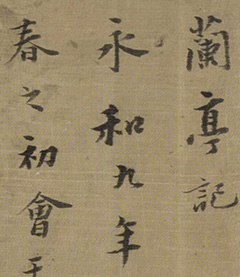 蘭亭記
永和九年
春之初會于